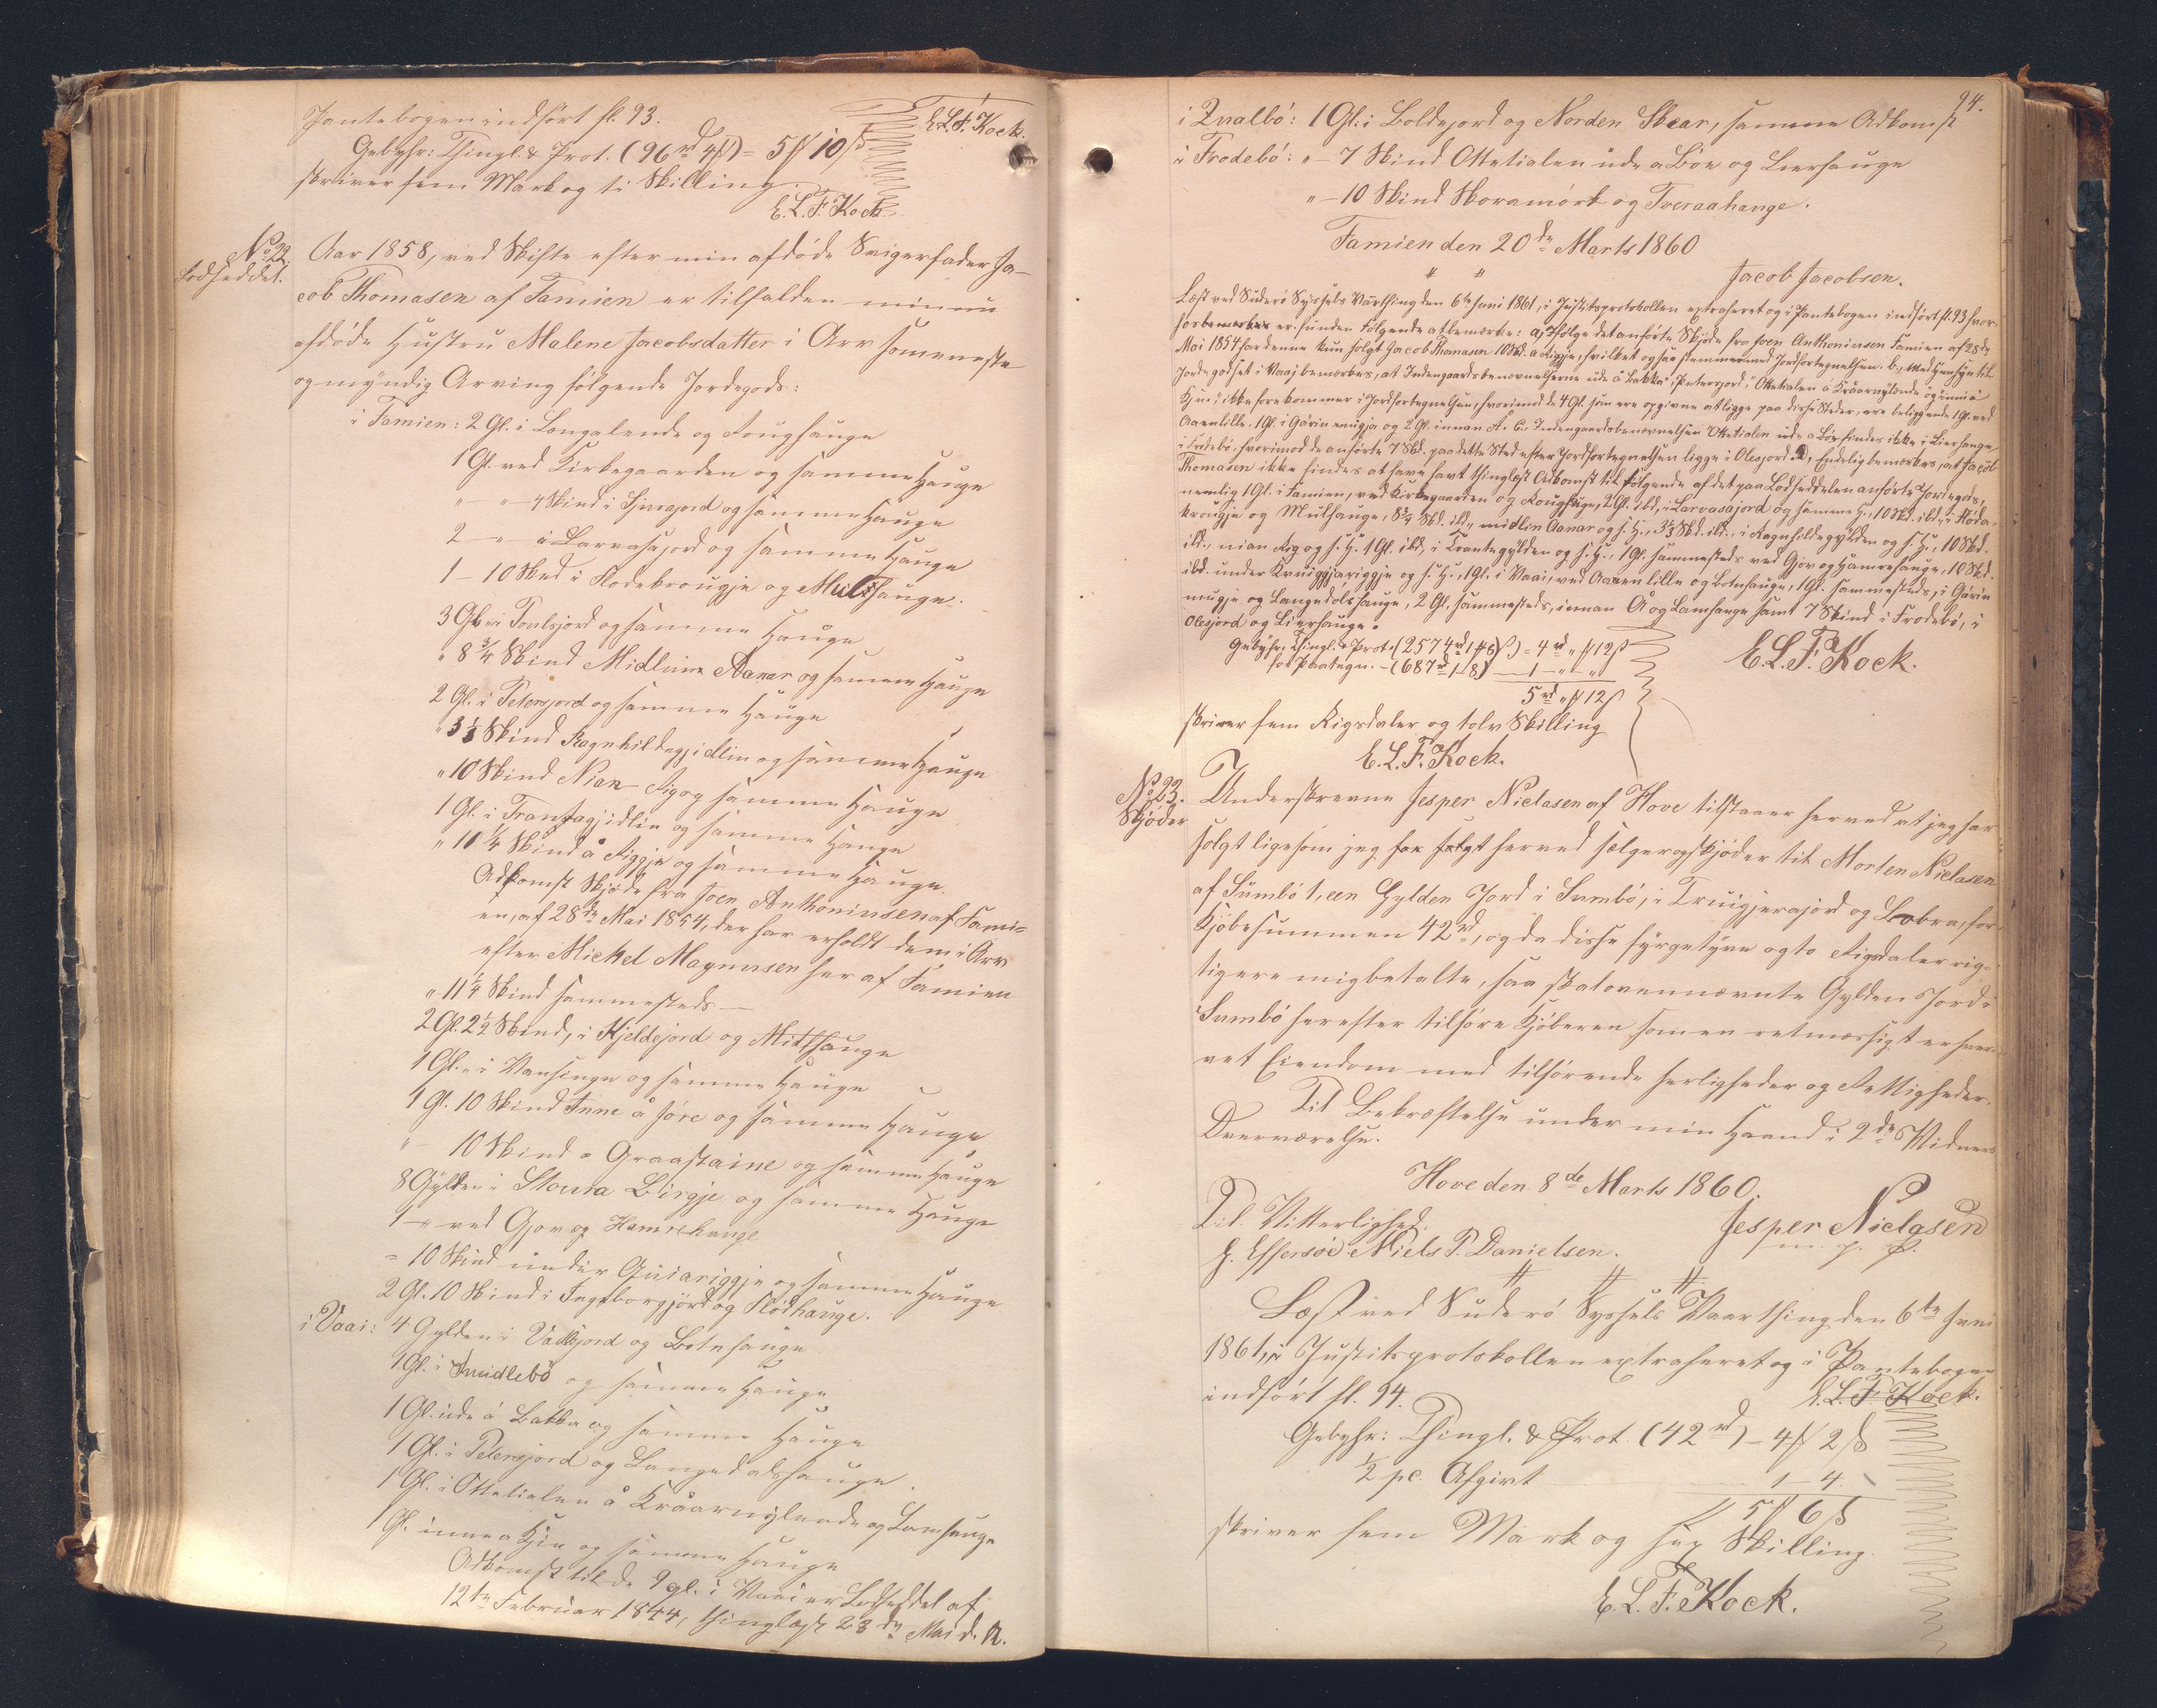 Pantebogen indført fl. 93.
E. L. F. Kock.
Gebyhr: Thingl. & Prot. (96 rd 4 ß) = 5 ℳ 10 ß
skriver fem Mark og ti Skilling
E. L. F. Kock.
No 22.
Lodseddel.
Aar 1858, ved Skifte efter min afdøde Svigerfader Ja-
cob Thomasen af Famien er tilfalden min nu
afdøde Hustru Malene Jacobsdatter i Arv som eneste
og myndig Arving følgende Jordegods:
i Famien: 2 Gl. i Longalende og Roughauge
1 Gl. ved Kirkegaarden og samme Hauge
" - " - 4 Skind i Hjurajord og samme Hauge
2 - " - i Larvasajord og samme Hauge
1 - 10 Skd i Flodekrougje og Mulshauge.
3 Gl. i Poulsjord og samme Hauge
" 8 3/4 Skind Midlum Aanar og samme Hauge
2 Gl. i Petersjord og samme Hauge
" 3 1/3 Skind Ragnhildegjidlin og samme Hauge
" 10 Skind Nian Rig og samme Hauge
1 Gl. i Trantagjidlin og samme Hauge
" 11 1/4 Skind å Riggje og samme Hauge.
Adkomst Skjøde fra Joen Anthoniusen af Fami=
en, af 28de Mai 1854, der har erholdt dem i Arv
efter Mickel Magnusen her af Famien
" 11 1/4 Skind sammesteds —
2 Gl. 2 1/2 Skind, i Kjeldejord og Mitthauge
1 Gl. " i Vansenge og samme Hauge
1 Gl. 10 Skind Inne å Jøre og samme Hauge
" - 10 Skind a Graastaine og samme Hauge
8 Gylden i Stoura Birgje og samme Hauge
1 - " ved Gjov og Hamrehauge
= 10 Skind under Guiariggje og samme Hauge
2 Gl. 10 Skind i Ingeborgjørd og Flodhauge.
i Vaai: 4 Gylden i Vadlsjord og Botnhauge
1 Gl. i Smidlebø og samme Hauge
1 Gl. ude å Bakka og samme Hauge
1 Gl. i Petersjord og Langedalshauge.
1 Gl. i Ottetialen å Kråarnylende og Lamhauge
1 Gl. innea Kjn og samme Hauge
Adkomst til de 9 gl. i Vaai er Lodseddel af
12te Februar 1844, thinglæst 28de Mai d. A.
94.
i Qvalbø: 1 Gl. i Boldejord og Norden Skear, samme Adkomst
i Frodebø: " - 7 Skind Ottetialen ude a Bøe og Lierhauge
" - 10 Skind Skoramørk og Tveraahauge.
Famien den 20de Marts 1860
Jacob Jacobsen.
Læst ved Suderø Syssels Vårthing den 6te Juni 1861, i Justitsprotokollen extraheret og i Pantebogen indført fl. 93 hvor-
for bemærkes er funden følgende at bemærke: a, Ifølge det anførte Skjøde fra Joen Anthoniusen Famien af 28de
Mai 1854 har denne kun solgt Jacob Thomasen 10 Skd. a Riggje, hvilket og saa stemmer med Jordfortegnelsen. b., Med Hensyn til
Jordegodset i Vaaj bemærkes, at Indengaardsbenævnelserne ude å Bakka", "Petersjord", Ottetialen å Kråarnylende og innia
Kjn", ikke forekommer i Jordfortegnelsen, hvorimod de 4 Gl. som ere opgivne at ligge paa disse Steder, ere beliggende 1 Gl. ved
Aaenlille, 1 Gl. i Gårin mugja og 2 Gl. innan A. C., Indengaardsbenævnelsen Ottetialen ude a Bøe findes ikke i Lierhauge
i Frodebø, hvorimod de anførte 7 Skd. paa dette Sted efter Jordfortegnelsen ligge i Olesjord. D, Endelig bemærkes, at Jacob
Thomasen ikke findes at have havt thinglæst Adkomst til følgende af det paa Lodseddelen anførte Jordegods,
nemlig 1 Gl. i Famien, ved Kirkegaarden og Roughauge, 2 Gl. ibd, i Larvasajord og samme H., 10 Skd. ibd., i Flöda-
krougje og Mulhauge, 8 3/4 Skd. ibd., midlin Aanar og s. H., 3 1/3 Skd. ibd., i Ragnhildegylden og s. H., 10 Skd.
ibd., nian Ryg og s. H. 1 Gl. ibd, i Trantegylden og s. H., 1 Gl. sammesteds ved Gjov og Hamrehauge, 10 Skd.
ibd. under Kruiggjariggje og s. H., 1 Gl. i Vaai, ved Aaaen lille og Botnhauge, 1 Gl. sammesteds, i Gårin
mugje og Langedalshauge, 2 Gl. sammesteds, innan Å og Lamhauge samt 7 Skind i Frodebø, i
Olesjord og Lierhauge.
Gebyhr, Thingl. & Prot. (2574 rd 1 ℳ 6 ß) = 4 rd " ℳ 12 ß
for Paategn. - (687 rd 1 - 8) — 1 - " "
5 rd " ℳ 12 ß
E. L. F. Kock.
skriver fem Rigsdaler og tolv Skilling
E. L. F. Kock.
No 23.
Skjøde
Underskrevne Jesper Niclasen af Hove tilstaaer herved at jeg har
solgt ligesom jeg har solgt herved sælger og skjøder til Morten Niclasen
af Sumbø 1, een Gylden Jord i Sumbø, i Truigjerajord og Lobra, for
Kjøbesummen 42 rd, og da disse fyrgetyve og to Rigsdaler rig-
tig ere mig betalte, saa skal ovennævnte Gylden Jord i
Sumbø herefter tilhøre Kjøberen som en retmæssigt erhver-
vet Eiendom med tilhørende Herligheder og Rettigheder.
Til Bekræftelse under min Haand i 2de Vidners
Overværelse.
Hove den 8de Marts 1860.
Til Vitterlighed.
Jesper Niclasen
m. p. P.
G. Effersøe Niels P. Danielsen.
Læst ved Suderø Syssels Vaarthing den 6te Juni
1861, i Justitsprotokollen extraheret og i Pantebogen
indført fl. 94.
E. L. F. Kock.
Gebyhr: Thingl. & Prot. (42 rd) - 4 ℳ 2 ß
1/2 pc. Afgivt 1 - 4.
5 ℳ 6 ß
skriver fem Mark og sex Skilling.
E. L. F. Kock.